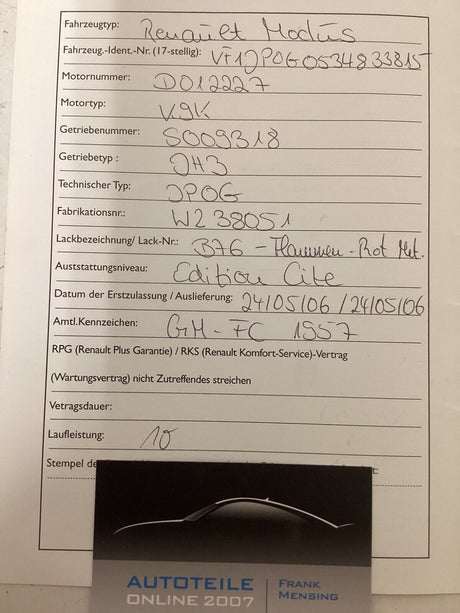 Fahrzeugtyp: Renault Modus
Fahrzeug.-Ident.-Nr. (17-stellig): VF1JP0G0534833815
Motornummer: D012227
Motortyp: K9K
Getriebenummer: S009318
Getriebetyp : JH3
Technischer Typ: JP0G
Fabrikationsnr.: W238051
Lackbezeichnung/ Lack-Nr.: B76 - Flammen-Rot Met.
Auststattungsniveau: Edition Cite
Datum der Erstzulassung / Auslieferung: 24/05/06 / 24/05/06
Amtl.Kennzeichen: GM-FC 1557
RPG (Renault Plus Garantie) / RKS (Renault Komfort-Service)-Vertrag
(Wartungsvertrag) nicht Zutreffendes streichen
Vetragsdauer:
Laufleistung: 10
Stempel de
AUTOTEILE
ONLINE 2007
FRANK
MENSING